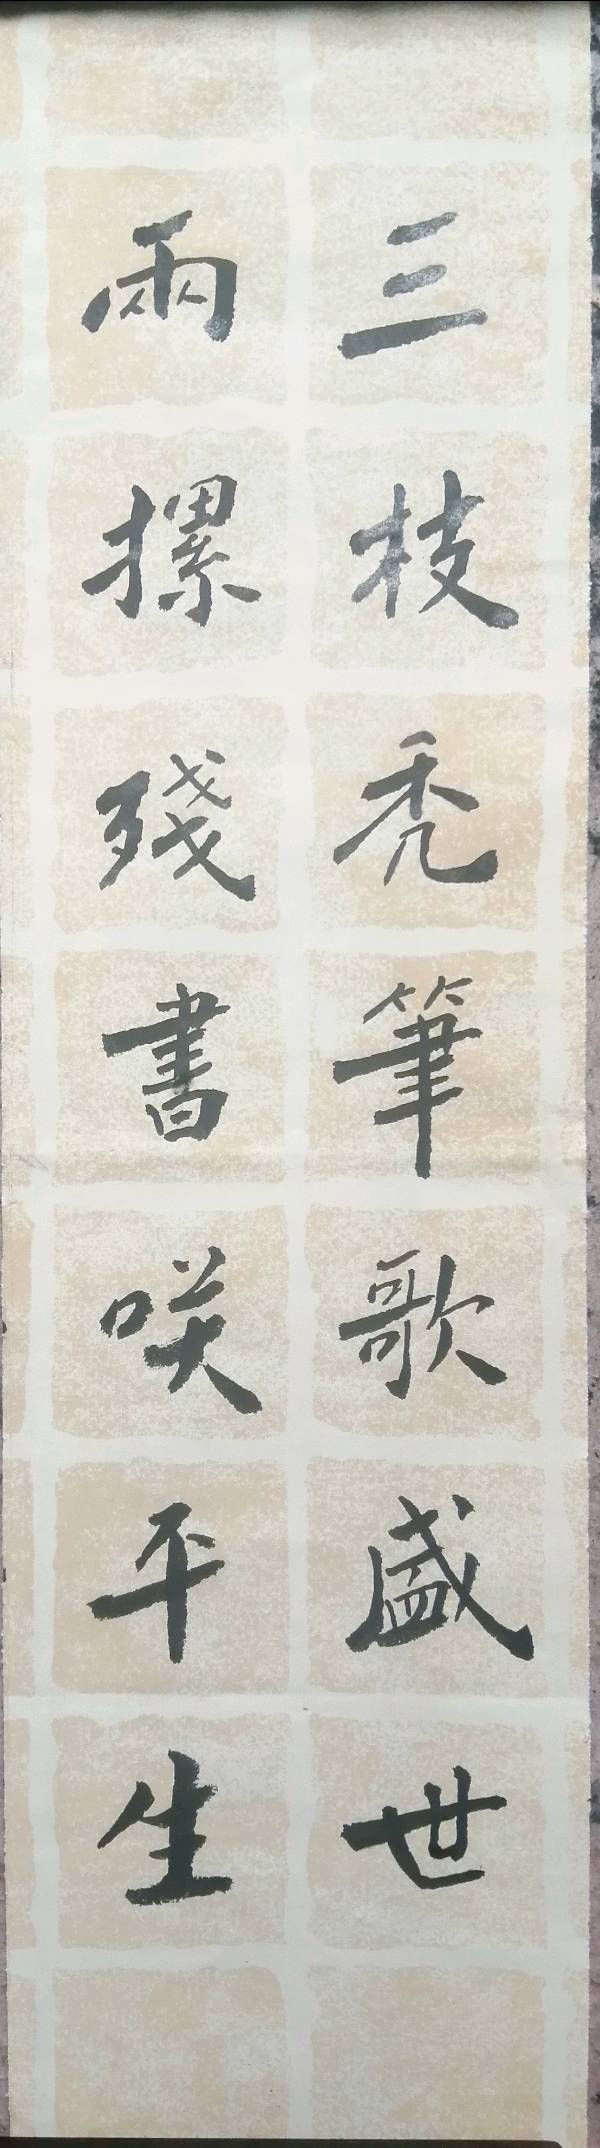 三枝禿筆歌盛世
兩摞殘書咲平生